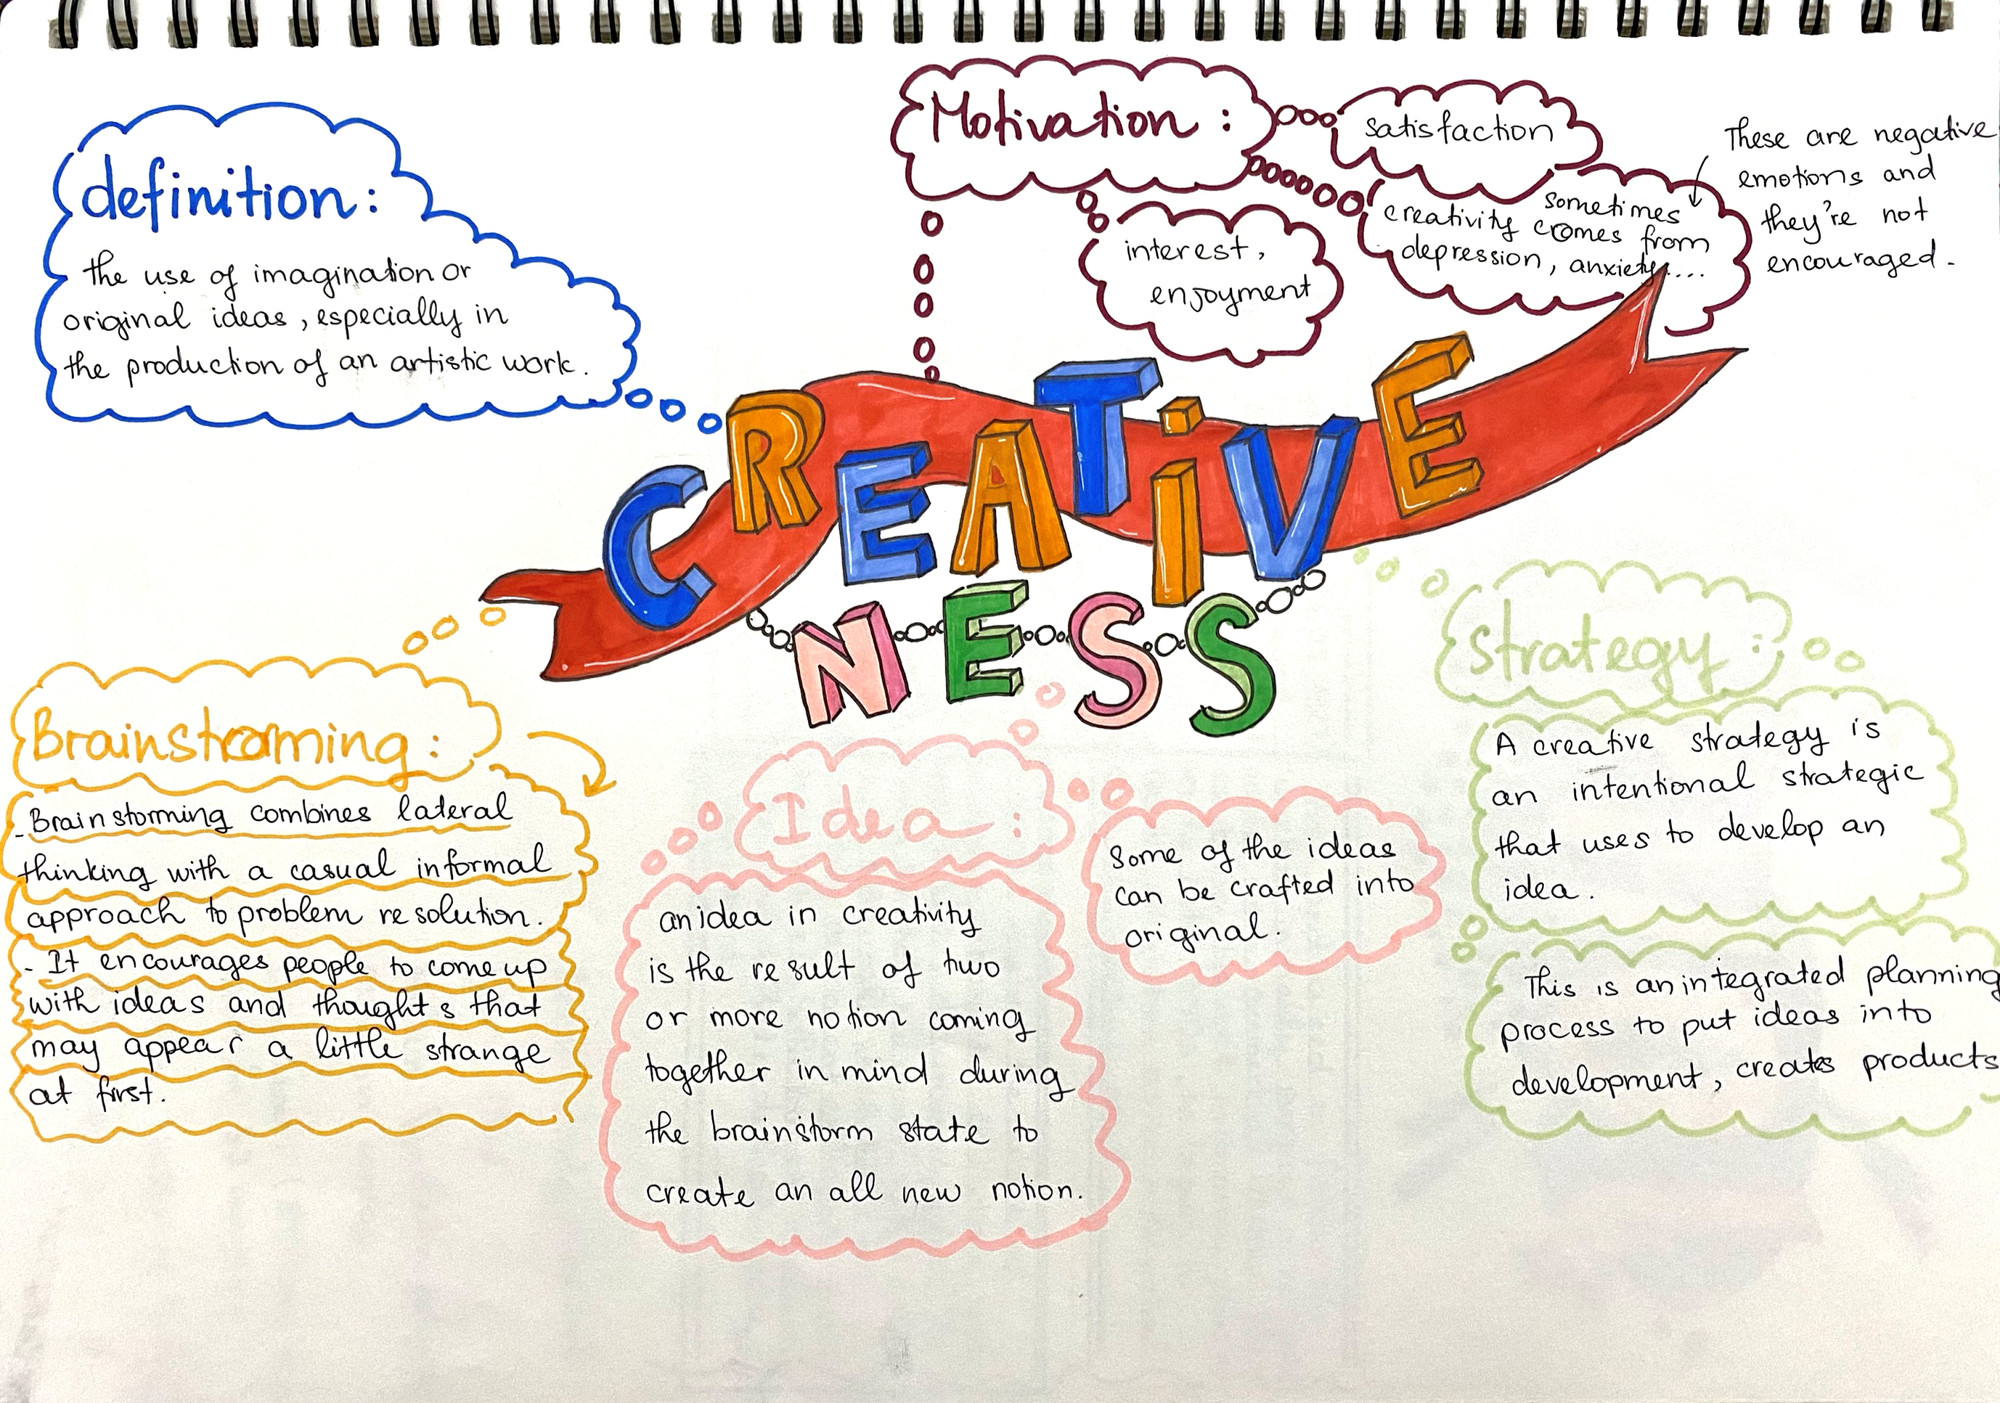 definition:
the use of imagination or
original ideas, especially in
the production of an artistic work.
Motivation:
satisfaction
interest,
enjoyment
sometimes
creativity comes from
depression, anxiety....
These are negative
emotions and
they're not
encouraged.
CREATiVE
NESS
Brainstorming:
- Brainstorming combines lateral
thinking with a casual informal
approach to problem resolution.
- It encourages people to come up
with ideas and thoughts that
may appear a little strange
at first.
Idea:
an idea in creativity
is the result of two
or more notion coming
together in mind during
the brainstorm state to
create an all new notion.
Some of the ideas
can be crafted into
original.
strategy:
A creative strategy is
an intentional strategic
that uses to develop an
idea.
This is an integrated planning
process to put ideas into
development, creates products